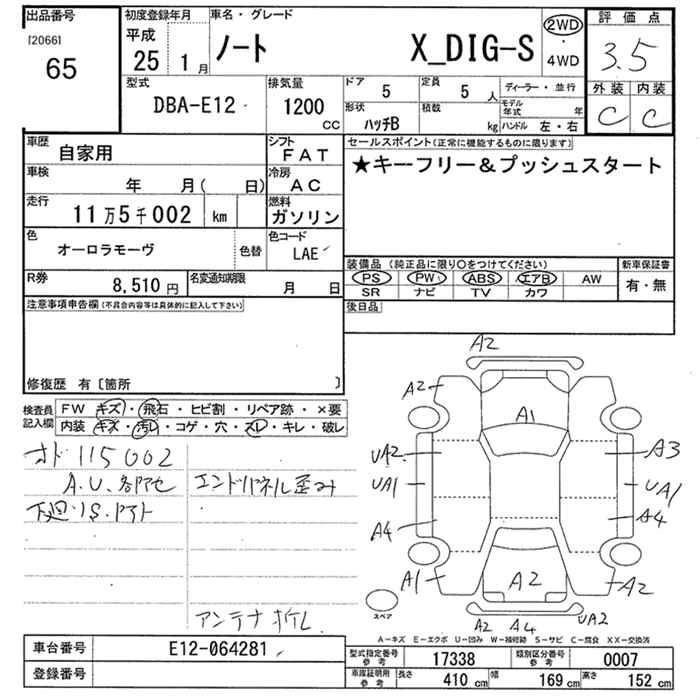 出品番号
[2066]
65
初度登録年月
平成
25 1月
車名・グレード
ノート X_DIG-S
2WD
・
4WD
評価点
3.5
外装 内装
C C
型式
DBA-E12
排気量
1200
CC
ドア
5
定員
5 人
形状
ハッチB
積載
kg
ディーラー・並行
モデル年式 年
ハンドル 左・右
車歴
自家用
シフト
FAT
車検
年 月( 日)
冷房
AC
走行
11万5千002 km
燃料
ガソリン
色
オーロラモーヴ
色替
色コード
LAE
R券
8,510 円
名変通知期限
月 日
セールスポイント(正常に機能するものに限ります)
★キーフリー&プッシュスタート
装備品(純正品に限り○をつけてください)
PS PW ABS エアB AW
SR ナビ TV カワ
新車保証書
有・無
後日品
注意事項申告欄(不具合内容等は具体的に記入して下さい)
修復歴 有〔箇所 〕
検査員記入欄
FW キズ・飛石・ヒビ割・リペア跡・×要
内装 キズ・汚レ・コゲ・穴・スレ・キレ・破レ
オド115002
A.U.各部色
エンドパネル歪み
下廻りS.アト
アンテナ折レ
A2
A2
A1
UA2 A3
UA1 UA1
A4 A4
A1 A2 A2
スペア
A2 A4 UA2
A-キズ E-エクボ U-凹み W-補修跡 S-サビ C-腐食 XX-交換済
車台番号
E12-064281
登録番号
型式指定番号
参考
17338
類別区分番号
参考
0007
車庫証明用
参考
長さ
410 cm
幅
169 cm
高さ
152 cm